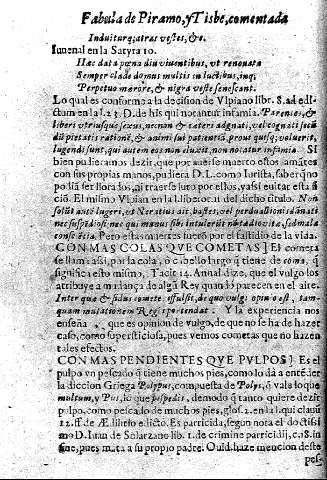 Fabula de Piramo, y Tisbe, comentada
Induitur, atras vestes, &c.
Iuuenal en la Satyra 10.
Hæc data pœna diu viuentibus, vt renouata
Semper clade domus multis in luctibus, inq;
Perpetuo mærore, & nigra veste senescant.
Lo qual es conforme a la decision de Vlpiano libr. 8. ad edi-
ctum en la l. 23. D. de his qui notantur infamia. Parentes, &
liberi vtriusque sexus, necnon & cæteri adgnati, vel cognati secū
dū pietatis rationē, & animi sui patientiā, prout quisq; voluerit,
lugendi sunt, qui autem eos non eluxit, non notatur infamia. SI
bien pudieramos dezir, que por auerse muerto estos amātes
con sus propias manos, pudiera D. L. como Iurista, saber q̃ no
podiā ser llorados, ni traerse luto por ellos, y assi euitar esta fi
ciō. El mismo Vlpian en la l. liberor. 11. del dicho titulo. Non
solūt autē lugeri, vt Neratius ait, hostes, vel perduellionis dānati
nec suspēdiosi: nec qui manus sibi intulerūt nō tædio vitæ, sed mala
consciētia. Pero estas muertes fuerō por el fastidio de la vida.
CON MAS COLAS QVE COMETAS ] El cometa
se llama assi, por la cola, o cabello largo q̃ tiene de coma, q̃
significa esto mismo, Tacit. 14. Annal. dize, que el vulgo los
atribuye a mudança de algū Rey quando parecen en el aire.
Inter quæ & sidus cometæ effulsit, de quo vulgi opinio est, tam-
quam mutationem Regis portendat. Y la experiencia nos
enseña que es opinion de vulgo, de que no se ha de hazer
caso, como supersticiosa, pues vemos cometas que no hazen
tales efectos.
CON MAS PENDIENTES QVE PVLPOS ] Es el
pulpo vn pescado q̃ tiene muchos pies, como lo dà a entēder
la diccion Griega Polypus, compuesta de Polys, q̃ vale lo que
multum, y Pus, lo que pes pedis, demodo q̃ tanto quiere dezir
pulpo, como pescado de muchos pies, glos. 2. en la l. qui clauū
12. ff. de Æ dilitio edicto. Es parricida, segun nota el doctissi
mo D. Iuan de Solarzano lib. 1. de crimine parricidij, c. 18. in
fine, pues mata a su propio padre. Ouid. haze mencion deste
pes-